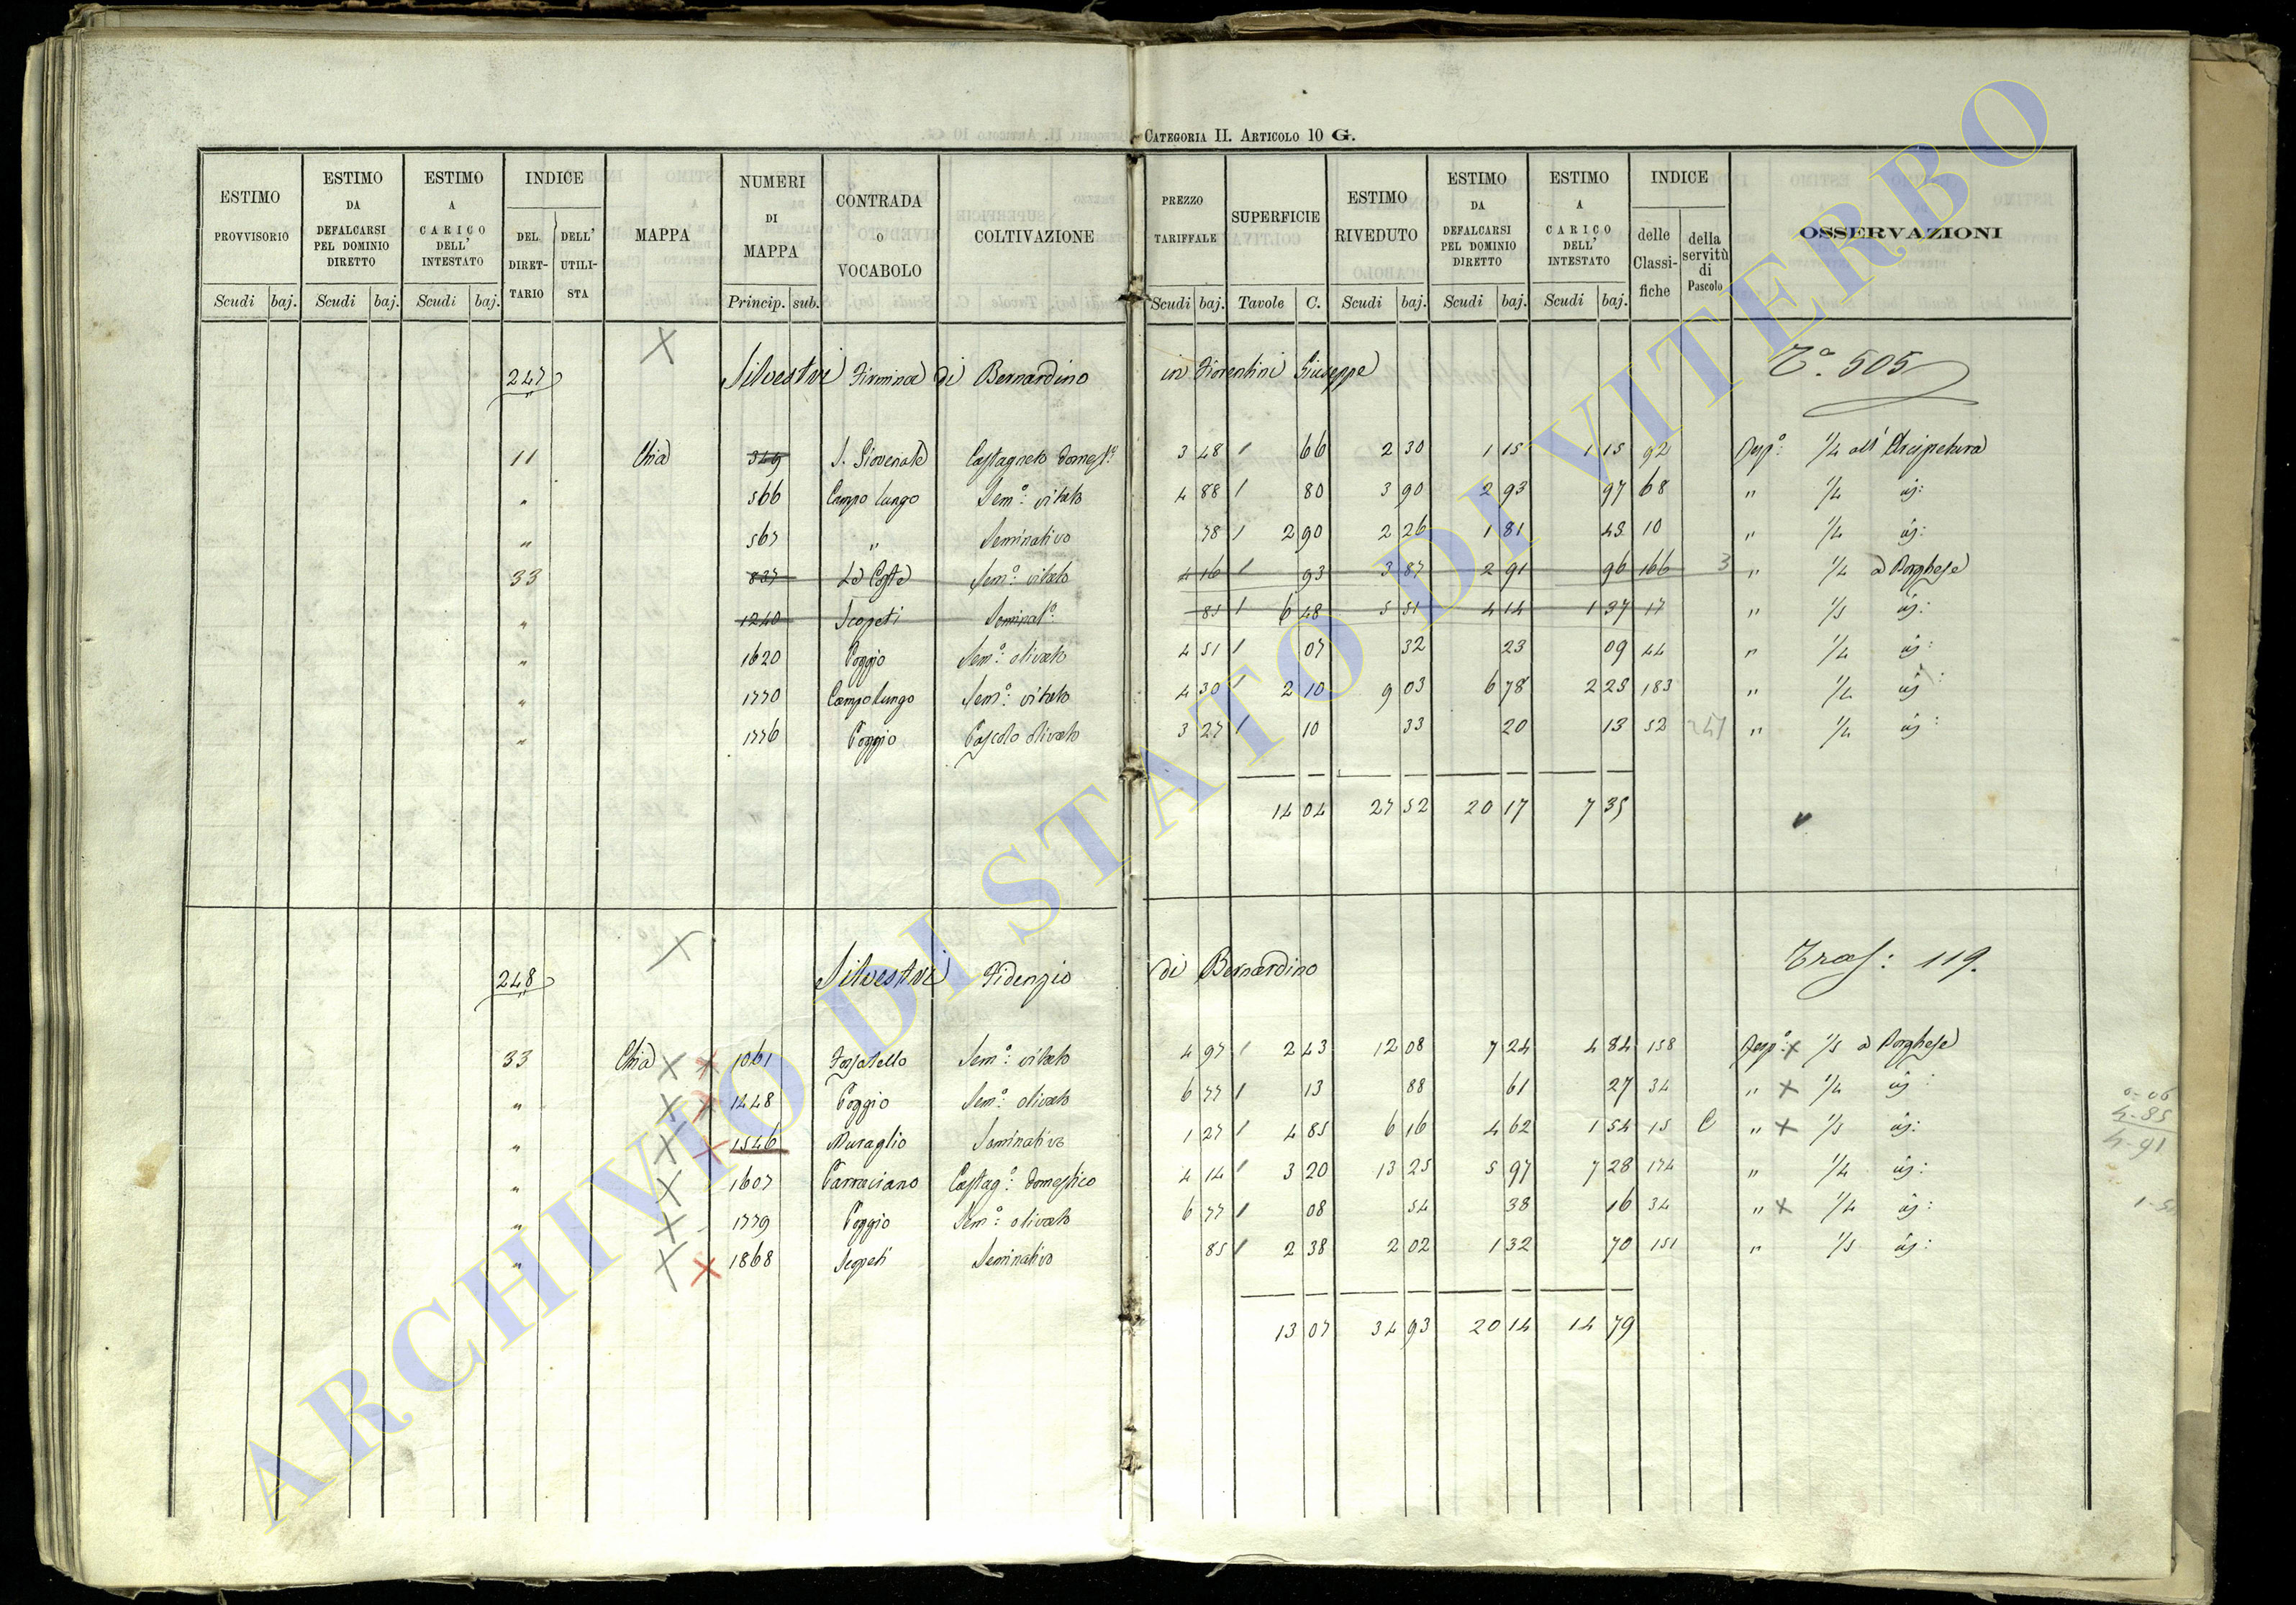 CATEGORIA II. ARTICOLO 10 G.
ESTIMO PROVVISORIO Scudi baj.
ESTIMO DA DEFALCARSI PEL DOMINIO DIRETTO Scudi baj.
ESTIMO A CARICO DELL' INTESTATO Scudi baj.
INDICE DEL DIRET-TARIO DELL' UTILI-STA
MAPPA
NUMERI DI MAPPA Princip. sub.
CONTRADA O VOCABOLO
COLTIVAZIONE
PREZZO TARIFFALE Scudi baj.
SUPERFICIE Tavole C.
ESTIMO RIVEDUTO Scudi baj.
ESTIMO DA DEFALCARSI PEL DOMINIO DIRETTO Scudi baj.
ESTIMO A CARICO DELL' INTESTATO Scudi baj.
INDICE delle Classi-fiche della servitù di Pascolo
OSSERVAZIONI
247 Silvestri Firmina di Bernardino in Fiorentini Giuseppe Tª. 505
11 Chia 349 S. Giovenale Castagneto domest.º 3 48 1 66 2 30 1 15 1 15 92 Risp.º 1/4 all' Arcipretura
" 566 Campo lungo Sem.º vitato 4 88 1 80 3 90 2 93 97 68 " 1/4 id:
" 567 " Seminativo 78 1 2 90 2 26 1 81 45 10 " 1/4 id:
33 837 Le Coste Sem.º vitato 4 16 1 93 3 87 2 91 96 166 3 " 1/4 a Borghese
" 1240 Scopeti Seminat.º 85 1 6 48 5 51 4 14 1 37 17 " 1/5 id:
" 1620 Poggio Sem.º olivato 4 51 1 07 32 23 09 44 " 1/4 id:
" 1770 Campolungo Sem.º vitato 4 30 1 2 10 9 03 6 78 2 25 183 " 1/4 id:
" 1776 Poggio Pascolo olivato 3 27 1 10 33 20 13 52 247 " 1/4 id:
14 04 27 52 20 17 7 35
248 Silvestri Fidenzio di Bernardino Trasp: 119.
33 Chia 1061 Fossatello Sem.º vitato 4 97 1 2 43 12 08 7 24 4 84 158 Risp.º 1/5 a Borghese
" 1448 Poggio Sem.º olivato 6 77 1 13 88 61 27 34 " 1/4 id:
" 1546 Muraglio Seminativo 1 27 1 4 85 6 16 4 62 1 54 15 C " 1/5 id:
" 1607 Parraciano Castag.º domestico 4 14 1 3 20 13 25 5 97 7 28 174 " 1/4 id:
" 1779 Poggio Sem.º olivato 6 77 1 08 54 38 16 34 " 1/4 id:
" 1868 Scopeti Seminativo 85 1 2 38 2 02 1 32 70 151 " 1/5 id:
13 07 34 93 20 14 14 79
0-06
4-85
4-91
ARCHIVIO DI STATO DI VITERBO